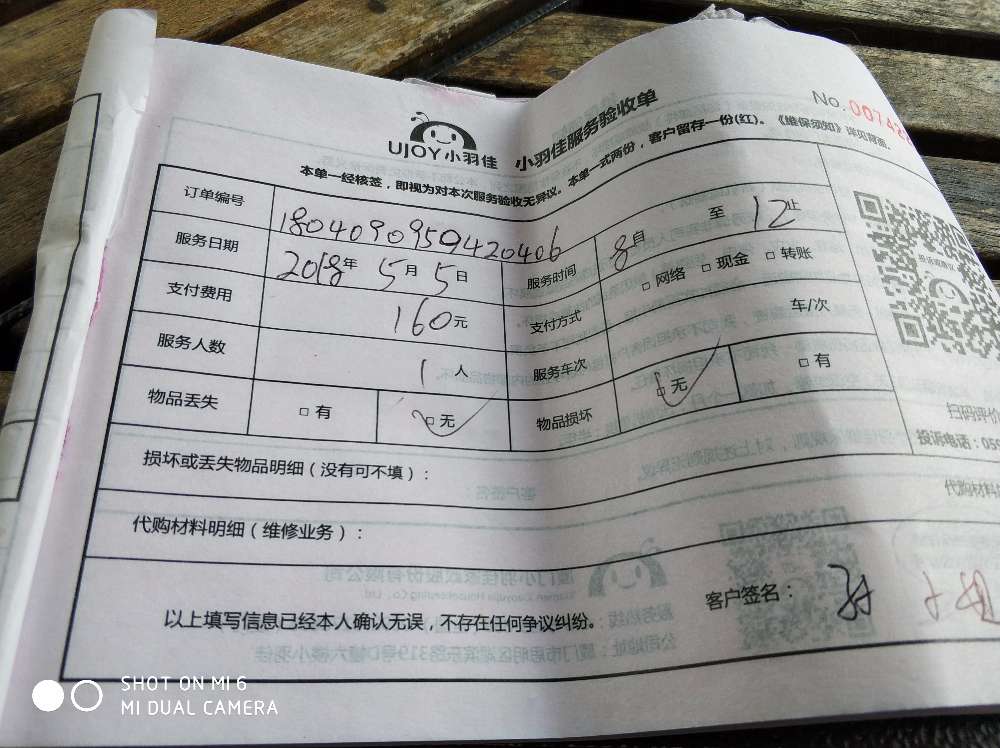 UJOY小羽佳 小羽佳服务验收单
No.
本单一经核签，即视为对本次服务验收无异议。本单一式两份，客户留存一份(红)。《维保须知》详见背面。
订单编号 1804090959420406
服务日期 2018年 5月5日 服务时间 8自 至 12止
支付费用 160元 支付方式 □网络 □现金 □转账
服务人数 1人 服务车次 车/次
物品丢失 □有 □无 物品损坏 □无 □有
扫码评价
投诉电话：
损坏或丢失物品明细（没有可不填）：
代购材料
代购材料明细（维修业务）：
以上填写信息已经本人确认无误，不存在任何争议纠纷。 客户签名：
SHOT ON MI 6
MI DUAL CAMERA